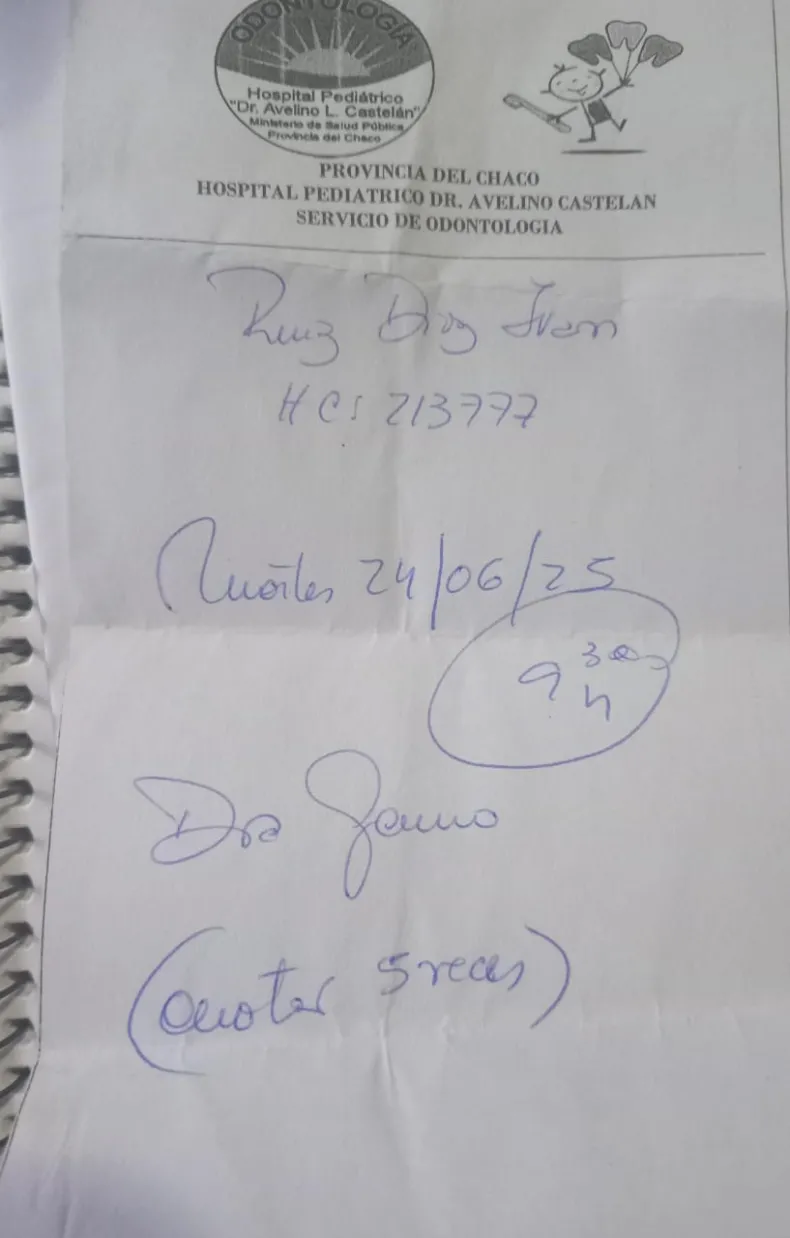 ODONTOLOGIA
Hospital Pediátrico
"Dr. Avelino L. Castelán"
Ministerio de Salud Pública
Provincia del Chaco
PROVINCIA DEL CHACO
HOSPITAL PEDIATRICO DR. AVELINO CASTELAN
SERVICIO DE ODONTOLOGIA
Ruiz Diaz Ivan
HC: 213777
Martes 24/06/25
9 30 h
Dra
(anotar 5 veces)